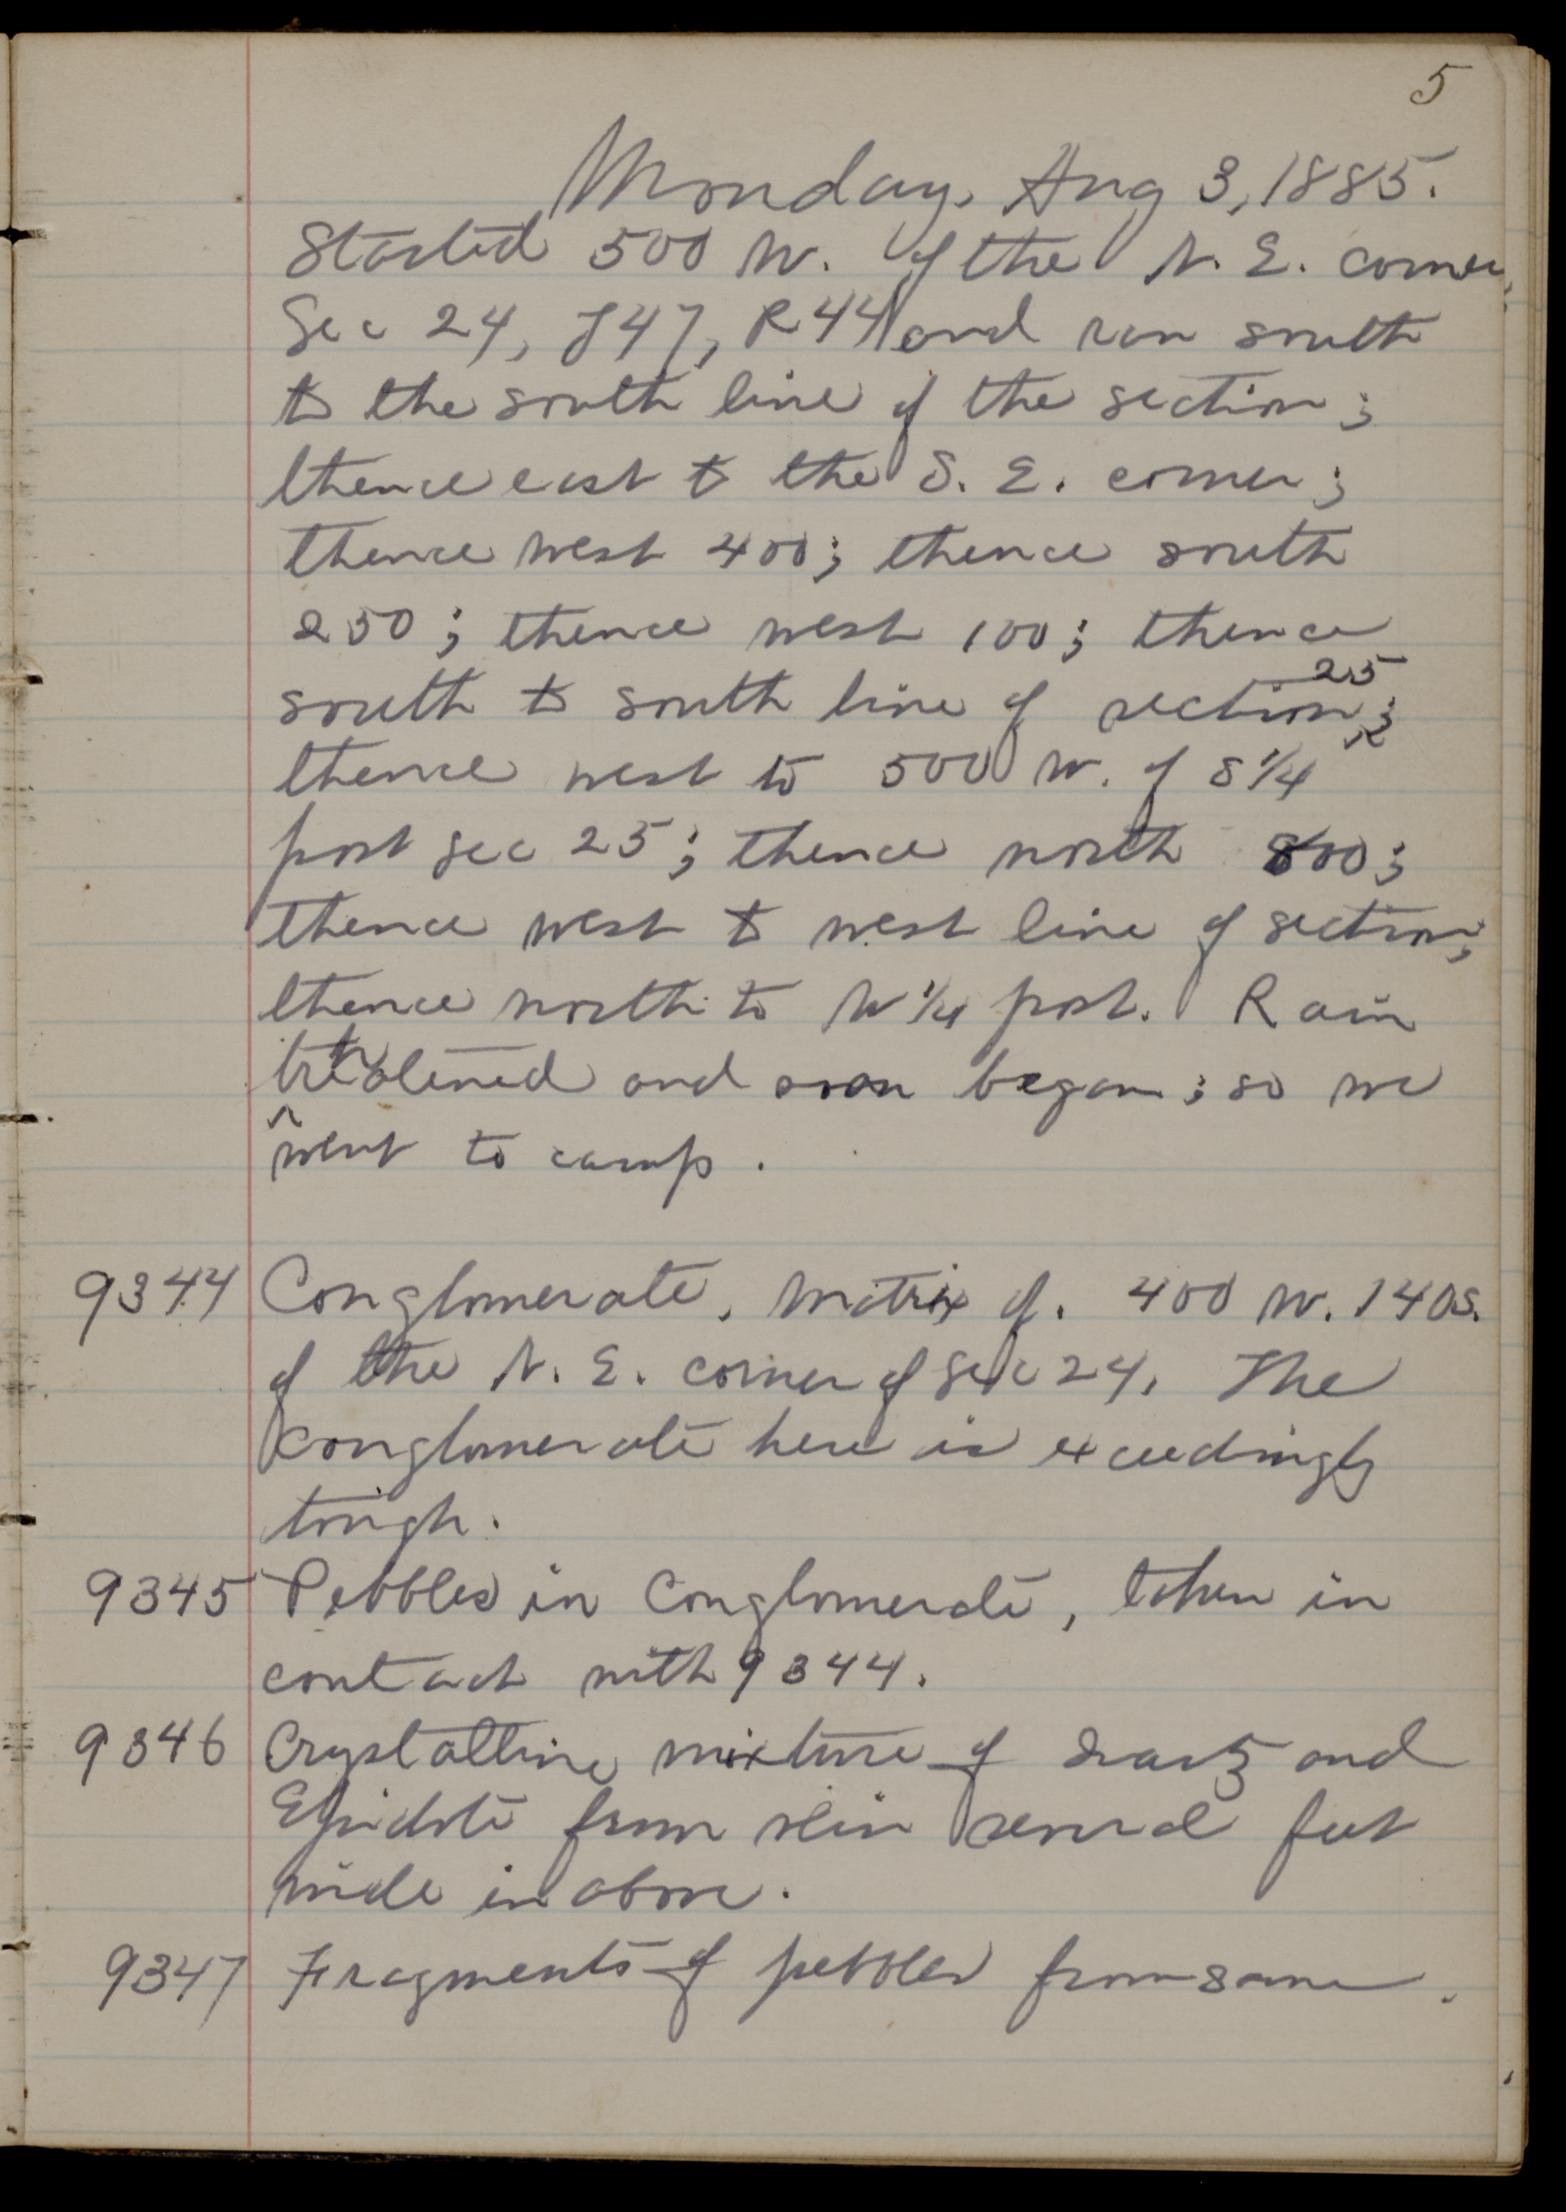 5
Monday, Aug 3, 1885.
Started 500 W. of the N. E. corner,
Sec 24, T47, R44 and ran south
to the south line of the section;
thence east to the S. E. corner;
thence west 400; thence south
250; thence west 100; thence
south to south line of section 25;
thence west to 500 W. of S 1/4
post Sec 25; thence north 800;
thence west to west line of section;
thence north to W 1/4 post. Rain
threatened and soon began; so we
went to camp.
9344 Conglomerate, matrix of. 400 W. 140 S.
of the N. E. corner of Sec 24. The
conglomerate here is exceedingly
tough.
9345 Pebbles in Conglomerate, taken in
contact with 9344.
9346 Crystalline mixture of Quartz and
Epidote from vein several feet
wide in above.
9347 Fragments of pebbles from same.